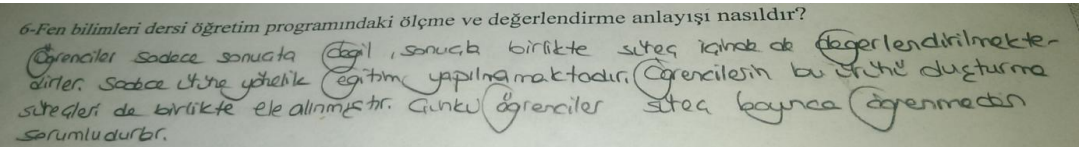 6-Fen bilimleri dersi öğretim programındaki ölçme ve değerlendirme anlayışı nasıldır?
Öğrenciler sadece sonuçta değil, sonuçla birlikte süreç içinde de değerlendirilmekte-
dirler. Sadece ürüne yönelik eğitim yapılmamaktadır. Öğrencilerin bu ürünü oluşturma
süreçleri de birlikte ele alınmıştır. Çünkü öğrenciler süreç boyunca öğrenmeden
sorumludurlar.